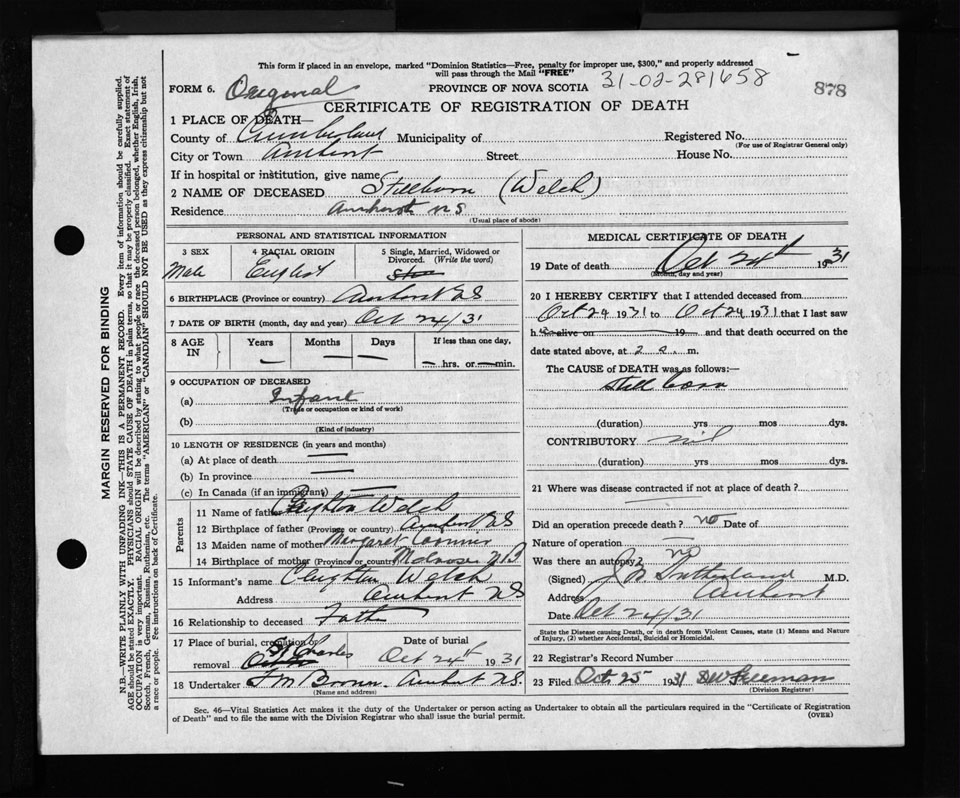 This form if placed in an envelope, marked "Dominion Statistics—Free, penalty for improper use, $300," and properly addressed
will pass through the Mail "FREE"
31-02-281658
878
FORM 6. Original
PROVINCE OF NOVA SCOTIA
CERTIFICATE OF REGISTRATION OF DEATH
1 PLACE OF DEATH—
County of Cumberland Municipality of Registered No.
(For use of Registrar General only)
City or Town Amherst Street House No.
If in hospital or institution, give name
2 NAME OF DECEASED Stillborn (Welch)
Residence Amherst NS
(Usual place of abode)
PERSONAL AND STATISTICAL INFORMATION
3 SEX 4 RACIAL ORIGIN 5 Single, Married, Widowed or Divorced. (Write the word)
Male English
6 BIRTHPLACE (Province or country) Amherst NS
7 DATE OF BIRTH (month, day and year) Oct 24/31
8 AGE IN Years Months Days If less than one day,
— — — — hrs. or — min.
9 OCCUPATION OF DECEASED
(a) Infant
(Trade or occupation or kind of work)
(b)
(Kind of industry)
10 LENGTH OF RESIDENCE (in years and months)
(a) At place of death —
(b) In province —
(c) In Canada (if an immigrant) —
Parents
11 Name of father Creighton Welch
12 Birthplace of father (Province or country) Amherst NS
13 Maiden name of mother Margaret
14 Birthplace of mother (Province or country) Melrose NB
15 Informant's name Creighton Welch
Address Amherst NS
16 Relationship to deceased Father
17 Place of burial, cremation or removal St Charles
Date of burial Oct 24th 1931
18 Undertaker Amherst NS.
(Name and address)
MEDICAL CERTIFICATE OF DEATH
19 Date of death Oct 24th 1931
(Month, day and year)
20 I HEREBY CERTIFY that I attended deceased from
Oct 24 1931 to Oct 24 1931 that I last saw
h alive on 19 and that death occurred on
date stated above, at 2 a. m.
The CAUSE of DEATH was as follows:—
still born
(duration) yrs mos dys.
CONTRIBUTORY nil
(duration) yrs mos dys.
21 Where was disease contracted if not at place of death?
Did an operation precede death? no Date of
Nature of operation —
Was there an autopsy? no
(Signed) J M Sutherland M.D.
Address Amherst
Date Oct 24/31
State the Disease causing Death, or in death from Violent Causes, state (1) Means and Nature
of Injury, (2) whether Accidental, Suicidal or Homicidal.
22 Registrar's Record Number
23 Filed Oct. 25 1931 Freeman
(Division Registrar)
Sec. 46—Vital Statistics Act makes it the duty of the Undertaker or person acting as Undertaker to obtain all the particulars required in the "Certificate of Registration
of Death" and to file the same with the Division Registrar who shall issue the burial permit.
(OVER)
MARGIN RESERVED FOR BINDING
N.B.—WRITE PLAINLY WITH UNFADING INK—THIS IS A PERMANENT RECORD. Every item of information should be carefully supplied.
AGE should be stated EXACTLY. PHYSICIANS should STATE CAUSE OF DEATH in plain terms, so that it may be properly classified. Exact statement of
OCCUPATION is very important. RACIAL ORIGIN will be described by stating to what people or race the deceased person belonged, whether English, Irish,
Scotch, French, German, Russian, Ruthenian, etc. The terms "AMERICAN" or "CANADIAN" SHOULD NOT BE USED as they express citizenship but not
a race or people. Fee instructions on back of Certificate.